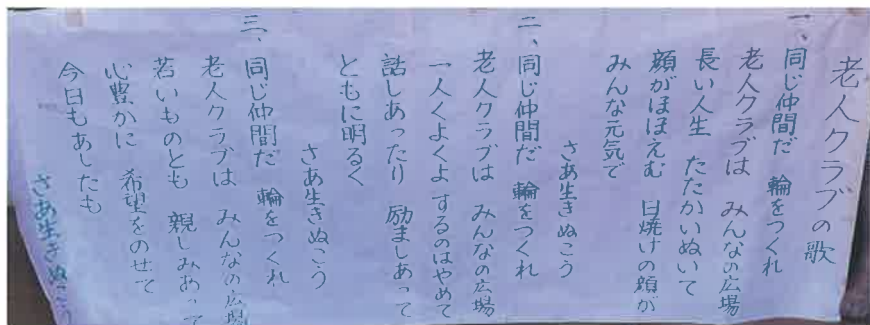 老人クラブの歌
一、同じ仲間だ 輪をつくれ
老人クラブは みんなの広場
長い人生 たたかいぬいて
顔がほほえむ 日焼けの顔が
みんな元気で
さあ生きぬこう
二、同じ仲間だ 輪をつくれ
老人クラブは みんなの広場
一人くよくよ するのはやめて
話しあったり 励ましあって
ともに明るく
さあ生きぬこう
三、同じ仲間だ 輪をつくれ
老人クラブは みんなの広場
若いものとも 親しみあって
心豊かに 希望をのせて
今日もあしたも
さあ生きぬこう